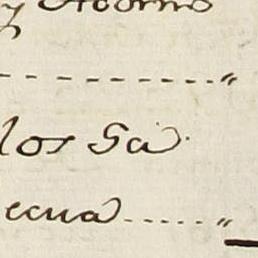 y Adorno
los Sa
ecua ...... "